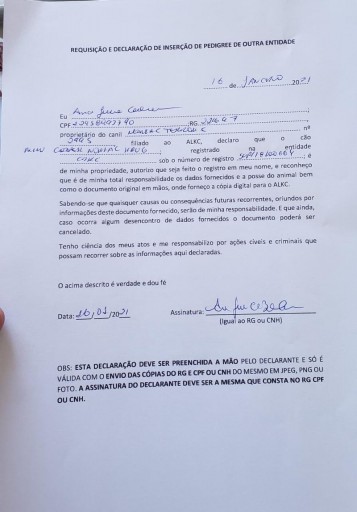 REQUISIÇÃO E DECLARAÇÃO DE INSERÇÃO DE PEDIGREE DE OUTRA ENTIDADE
16 de JANEIRO 2021
Eu
CPF RG
proprietário do canil nº
filiado ao ALKC, declaro que o cão
registrado na entidade
sob o número de registro é
de minha propriedade, autorizo que seja feito o registro em meu nome, e reconheço
que é de minha total responsabilidade os dados fornecidos e a posse do animal bem
como o documento original em mãos, onde forneço a cópia digital para o ALKC.
Sabendo-se que quaisquer causas ou consequências futuras recorrentes, oriundos por
informações deste documento fornecido, serão de minha responsabilidade. E que ainda,
caso ocorra algum desencontro de dados fornecidos o documento poderá ser
cancelado.
Tenho ciência dos meus atos e me responsabilizo por ações cíveis e criminais que
possam recorrer sobre as informações aqui declaradas.
O acima descrito é verdade e dou fé
Data: 16/01/2021 Assinatura:
(Igual ao RG ou CNH)
OBS: ESTA DECLARAÇÃO DEVE SER PREENCHIDA A MÃO PELO DECLARANTE E SÓ É
VÁLIDA COM O ENVIO DAS CÓPIAS DO RG E CPF OU CNH DO MESMO EM JPEG, PNG OU
FOTO. A ASSINATURA DO DECLARANTE DEVE SER A MESMA QUE CONSTA NO RG CPF
OU CNH.